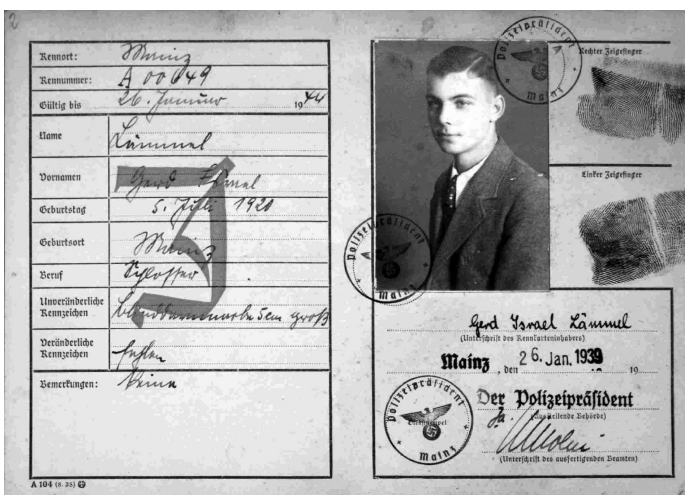 2
Kennort: Mainz
Kennummer: A 00649
Gültig bis 26. Januar 1944
Name Lämmel
Vornamen Gerd Israel
Geburtstag 5. Juli 1920
Geburtsort Mainz
Beruf Schlosser
Unveränderliche Kennzeichen Blinddarmnarbe 5cm groß
Veränderliche Kennzeichen fehlen
Bemerkungen: Keine
J
A 104 (8. 38)
Polizeipräsident
Mainz
Rechter Zeigefinger
Linker Zeigefinger
Polizeipräsident
Mainz
Gerd Israel Lämmel
(Unterschrift des Kennkarteninhabers)
Mainz, den 26. Jan. 1939 19
Der Polizeipräsident
(Ausstellende Behörde)
Polizeipräsident
Dienststempel
Mainz
(Unterschrift des ausfertigenden Beamten)